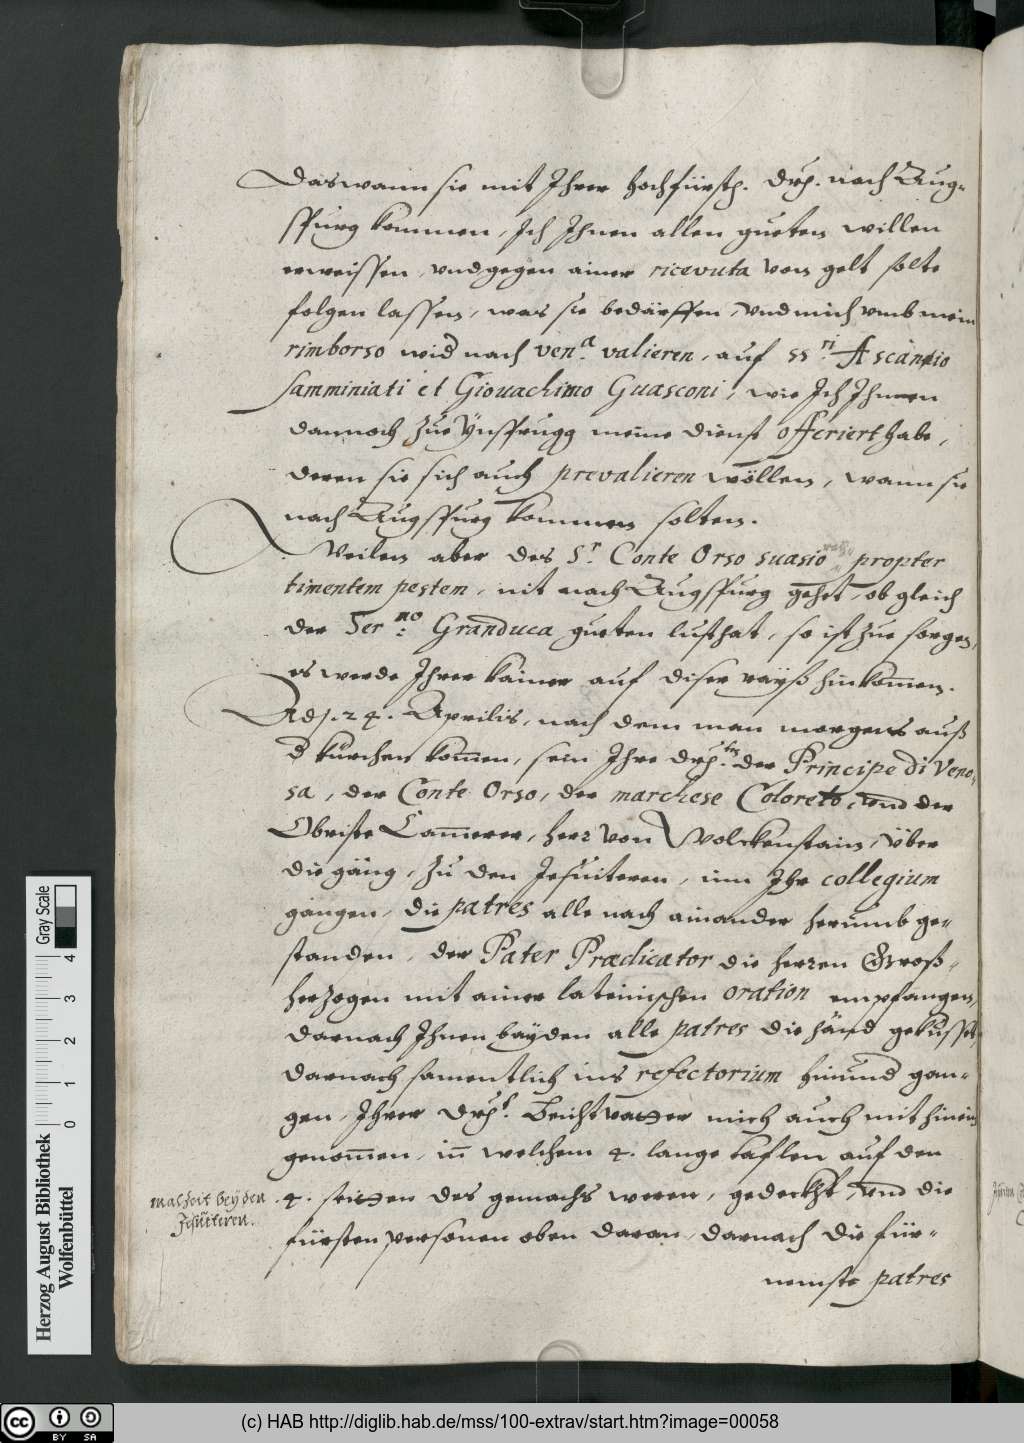 Das wann sie mit Ihrer hochfürstl. Drl. nach Aug-
spurg kommen, Ich Ihnen allen gueten willen
erweissen, vnd gegen ainer ricevuta von gelt solte
folgen lassen, was sie bedärffen, vnd mich vmb mein
rimborso wid nach ven.a valieren, auf SS.ri Ascanio
Samminiati et Giouachimo Guasconi, wie Ich Ihnen
dannoch zue Ynsprugg meine dienst offeriert habe,
deren sie sich auch prevalieren wöllen, wann sie
nach Augspurg kommen solten.
Weilen aber des S.r Conte Orso suasio propter
timentem pestem, nit nach Augspurg gehet, ob gleich
der Ser.mo Granduca gueten lust hat, so ist zue sorgen,
es werde Ihrer kainer auf diser rayß hinkom̄en.
Adj. 24. Aprilis, nach dem man morgens auß
d kürchen kom̄en, sein Ihre Drl.n der Principe di Veno-
sa, der Conte Orso, der marchese Coloreto, vnd der
Obriste Cam̄erer, herr von Wolckenstain, über
die gäng, zu den Jesuiteren, inn Ihr collegium
gangen, die patres alle nach ainander herumb ge-
standen, der Pater Prædicator die herren Groß-
herzogen mit ainer lateinischen oration empfangen,
darnach Ihnen bayden alle patres die händ geküsset,
darnach samentlich ins refectorium hinund gan-
gen, Ihrer Drl. Beichtvatter mich auch mit hinein
genom̄en, in̄ welchem 4. lange taflen auf den
4. seitten des gemachs weren, gedeckht, vnd die
fürsten personen oben daran, darnach die für-
nemste patres
malzeit bey den
Jesuiteren.
Herzog August Bibliothek
Wolfenbüttel
0 1 2 3 4
Gray Scale
cc BY SA
(c) HAB http://diglib.hab.de/mss/100-extrav/start.htm?image=00058